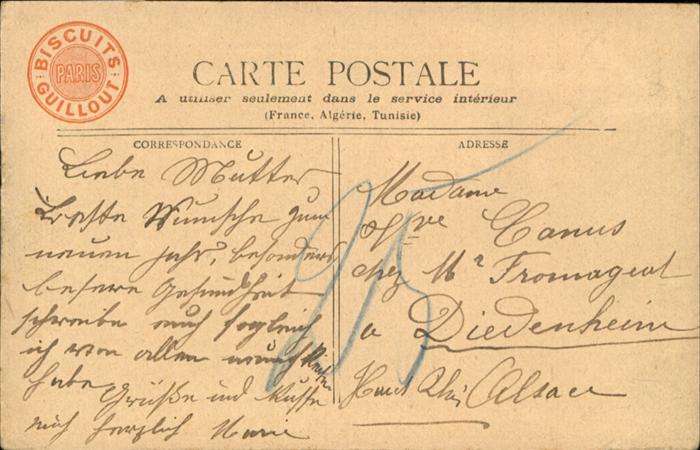 BISCUITS
PARIS
GUILLOUT
CARTE POSTALE
A utiliser seulement dans le service intérieur
(France, Algérie, Tunisie)
CORRESPONDANCE
Liebe Mutter
Beste Wunsche zum
neuen Jahr, besonders
besere Gesundheit
schreibe euch sogleich
ich von allen
habe, Grüße und Küsse
herzlich Marie
ADRESSE
Madame
Vve Canus
chez Mr Fromageat
a Diedenheim
Haut Rhin Alsace
25